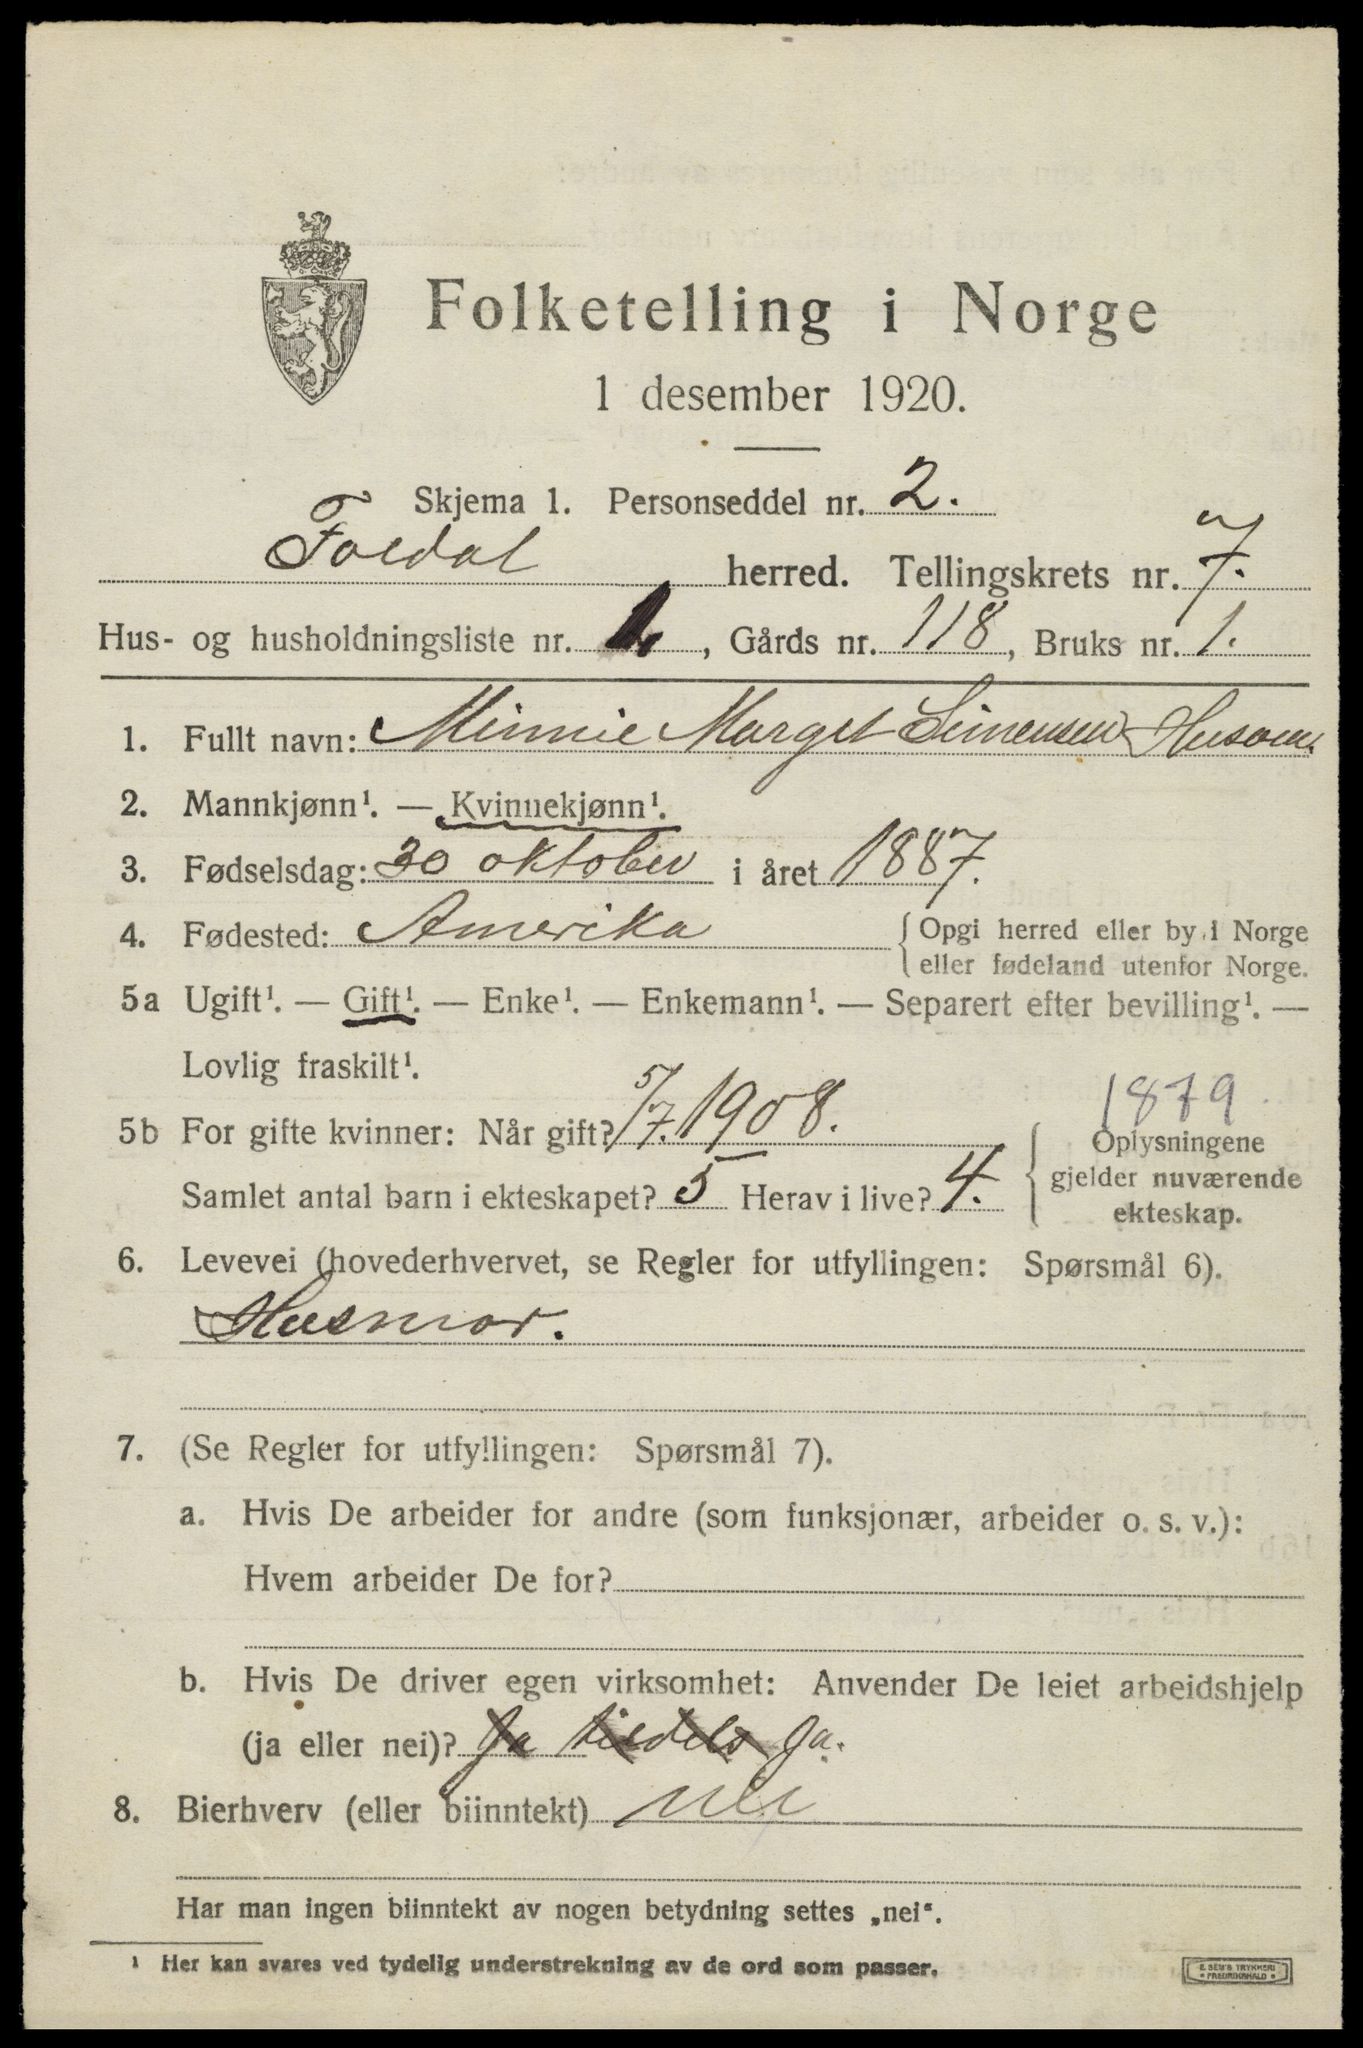 Folketelling i Norge
1 desember 1920.
Skjema 1. Personseddel nr. 2.
Foldal herred. Tellingskrets nr. 7.
Hus- og husholdningsliste nr. 1, Gårds nr. 118, Bruks nr. 1.
1. Fullt navn: Minnie Marget Simensen Husom.
2. Mannkjønn¹. — Kvinnekjønn¹.
3. Fødselsdag: 30 oktober i året 1887.
4. Fødested: Amerika { Opgi herred eller by i Norge
eller fødeland utenfor Norge.
5a Ugift¹. — Gift¹. — Enke¹. — Enkemann¹. — Separert efter bevilling¹. —
Lovlig fraskilt¹.
1879
5b For gifte kvinner: Når gift? 5/7. 1908. { Oplysningene
gjelder nuværende
Samlet antal barn i ekteskapet? 5 Herav i live? 4.
ekteskap.
6. Levevei (hovederhvervet, se Regler for utfyllingen: Spørsmål 6).
Husmor.
7. (Se Regler for utfyllingen: Spørsmål 7).
a. Hvis De arbeider for andre (som funksjonær, arbeider o. s. v.):
Hvem arbeider De for?
b. Hvis De driver egen virksomhet: Anvender De leiet arbeidshjelp
(ja eller nei)? Ja tildels Ja.
8. Bierhverv (eller biinntekt) nei
Har man ingen biinntekt av nogen betydning settes „nei“.
¹ Her kan svares ved tydelig understrekning av de ord som passer.
E. SEM'S TRYKKERI
FREDRIKSHALD